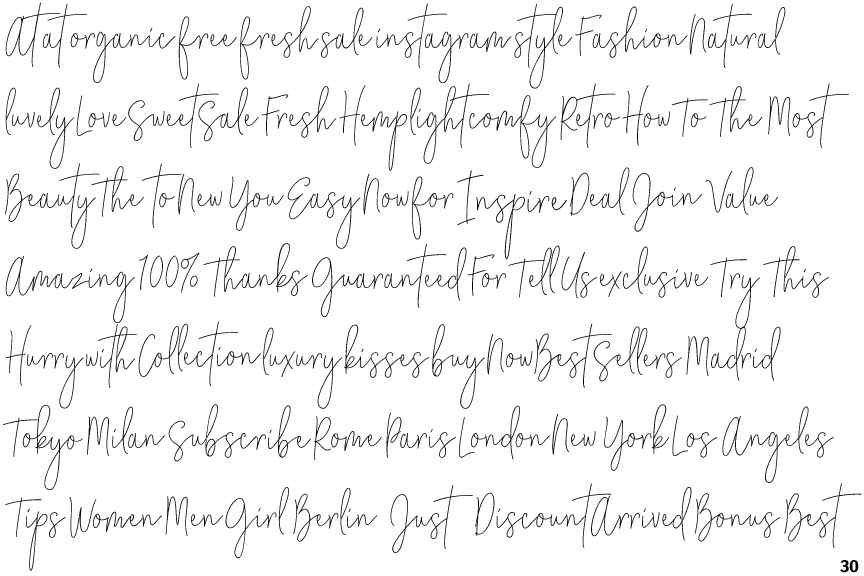 At at organic free fresh sale instagram style Fashion Natural
luvely Love Sweet Sale Fresh Hemp light comfy Retro How To The Most
Beauty The To New You Easy Now for Inspire Deal Join Value
Amazing 100% Thanks Guaranteed For Tell Us exclusive Try This
Hurry with Collection luxury kisses buy Now Best Sellers Madrid
Tokyo Milan Subscribe Rome Paris London New York Los Angeles
Tips Women Men Girl Berlin Just Discount Arrived Bonus Best
30